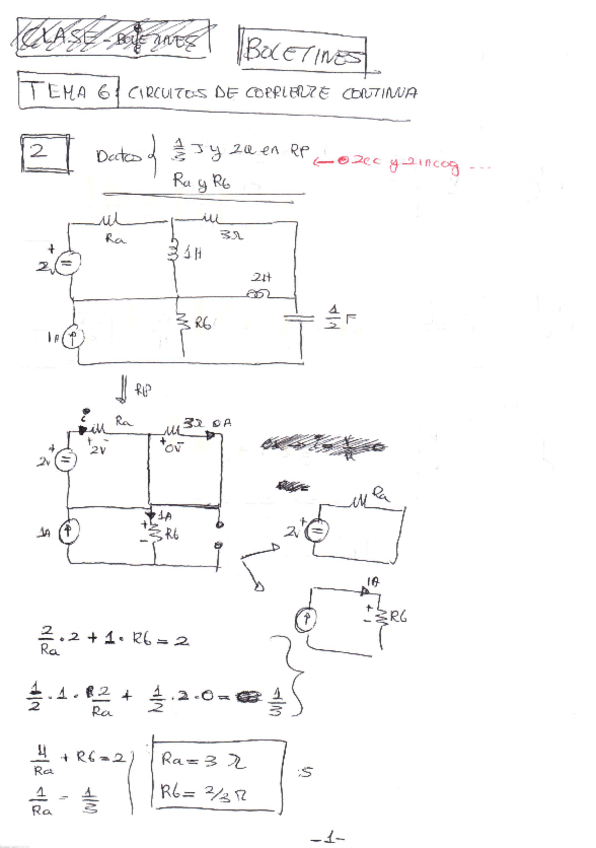 CLASE - BOLETINES
BOLETINES
TEMA 6: CIRCUITOS DE CORRIENTE CONTINUA
2
Datos { 1/3 J y 2W en RP
Ra y Rb
← 2 ec y 2 incog ...
Ra
3Ω
2V
1H
2H
1A
Rb
1/2 F
RP
i
Ra
3Ω 0A
2V
+ 2V -
+ 0V -
1A
1A
Rb
Ra
2V
1A
Rb
2/Ra · 2 + 1 · Rb = 2
1/2 · 1 · 2/Ra + 1/2 · 2 · 0 = 1/3
4/Ra + Rb = 2
1/Ra = 1/3
Ra = 3 Ω
Rb = 2/3 Ω
-1-